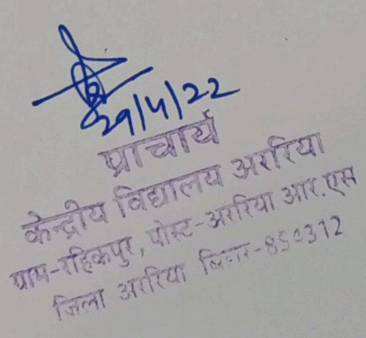 29/4/22
प्राचार्य
केन्द्रीय विद्यालय अररिया
ग्राम-रहिकपुर, पोस्ट-अररिया आर.एस
जिला अररिया बिहार-854312